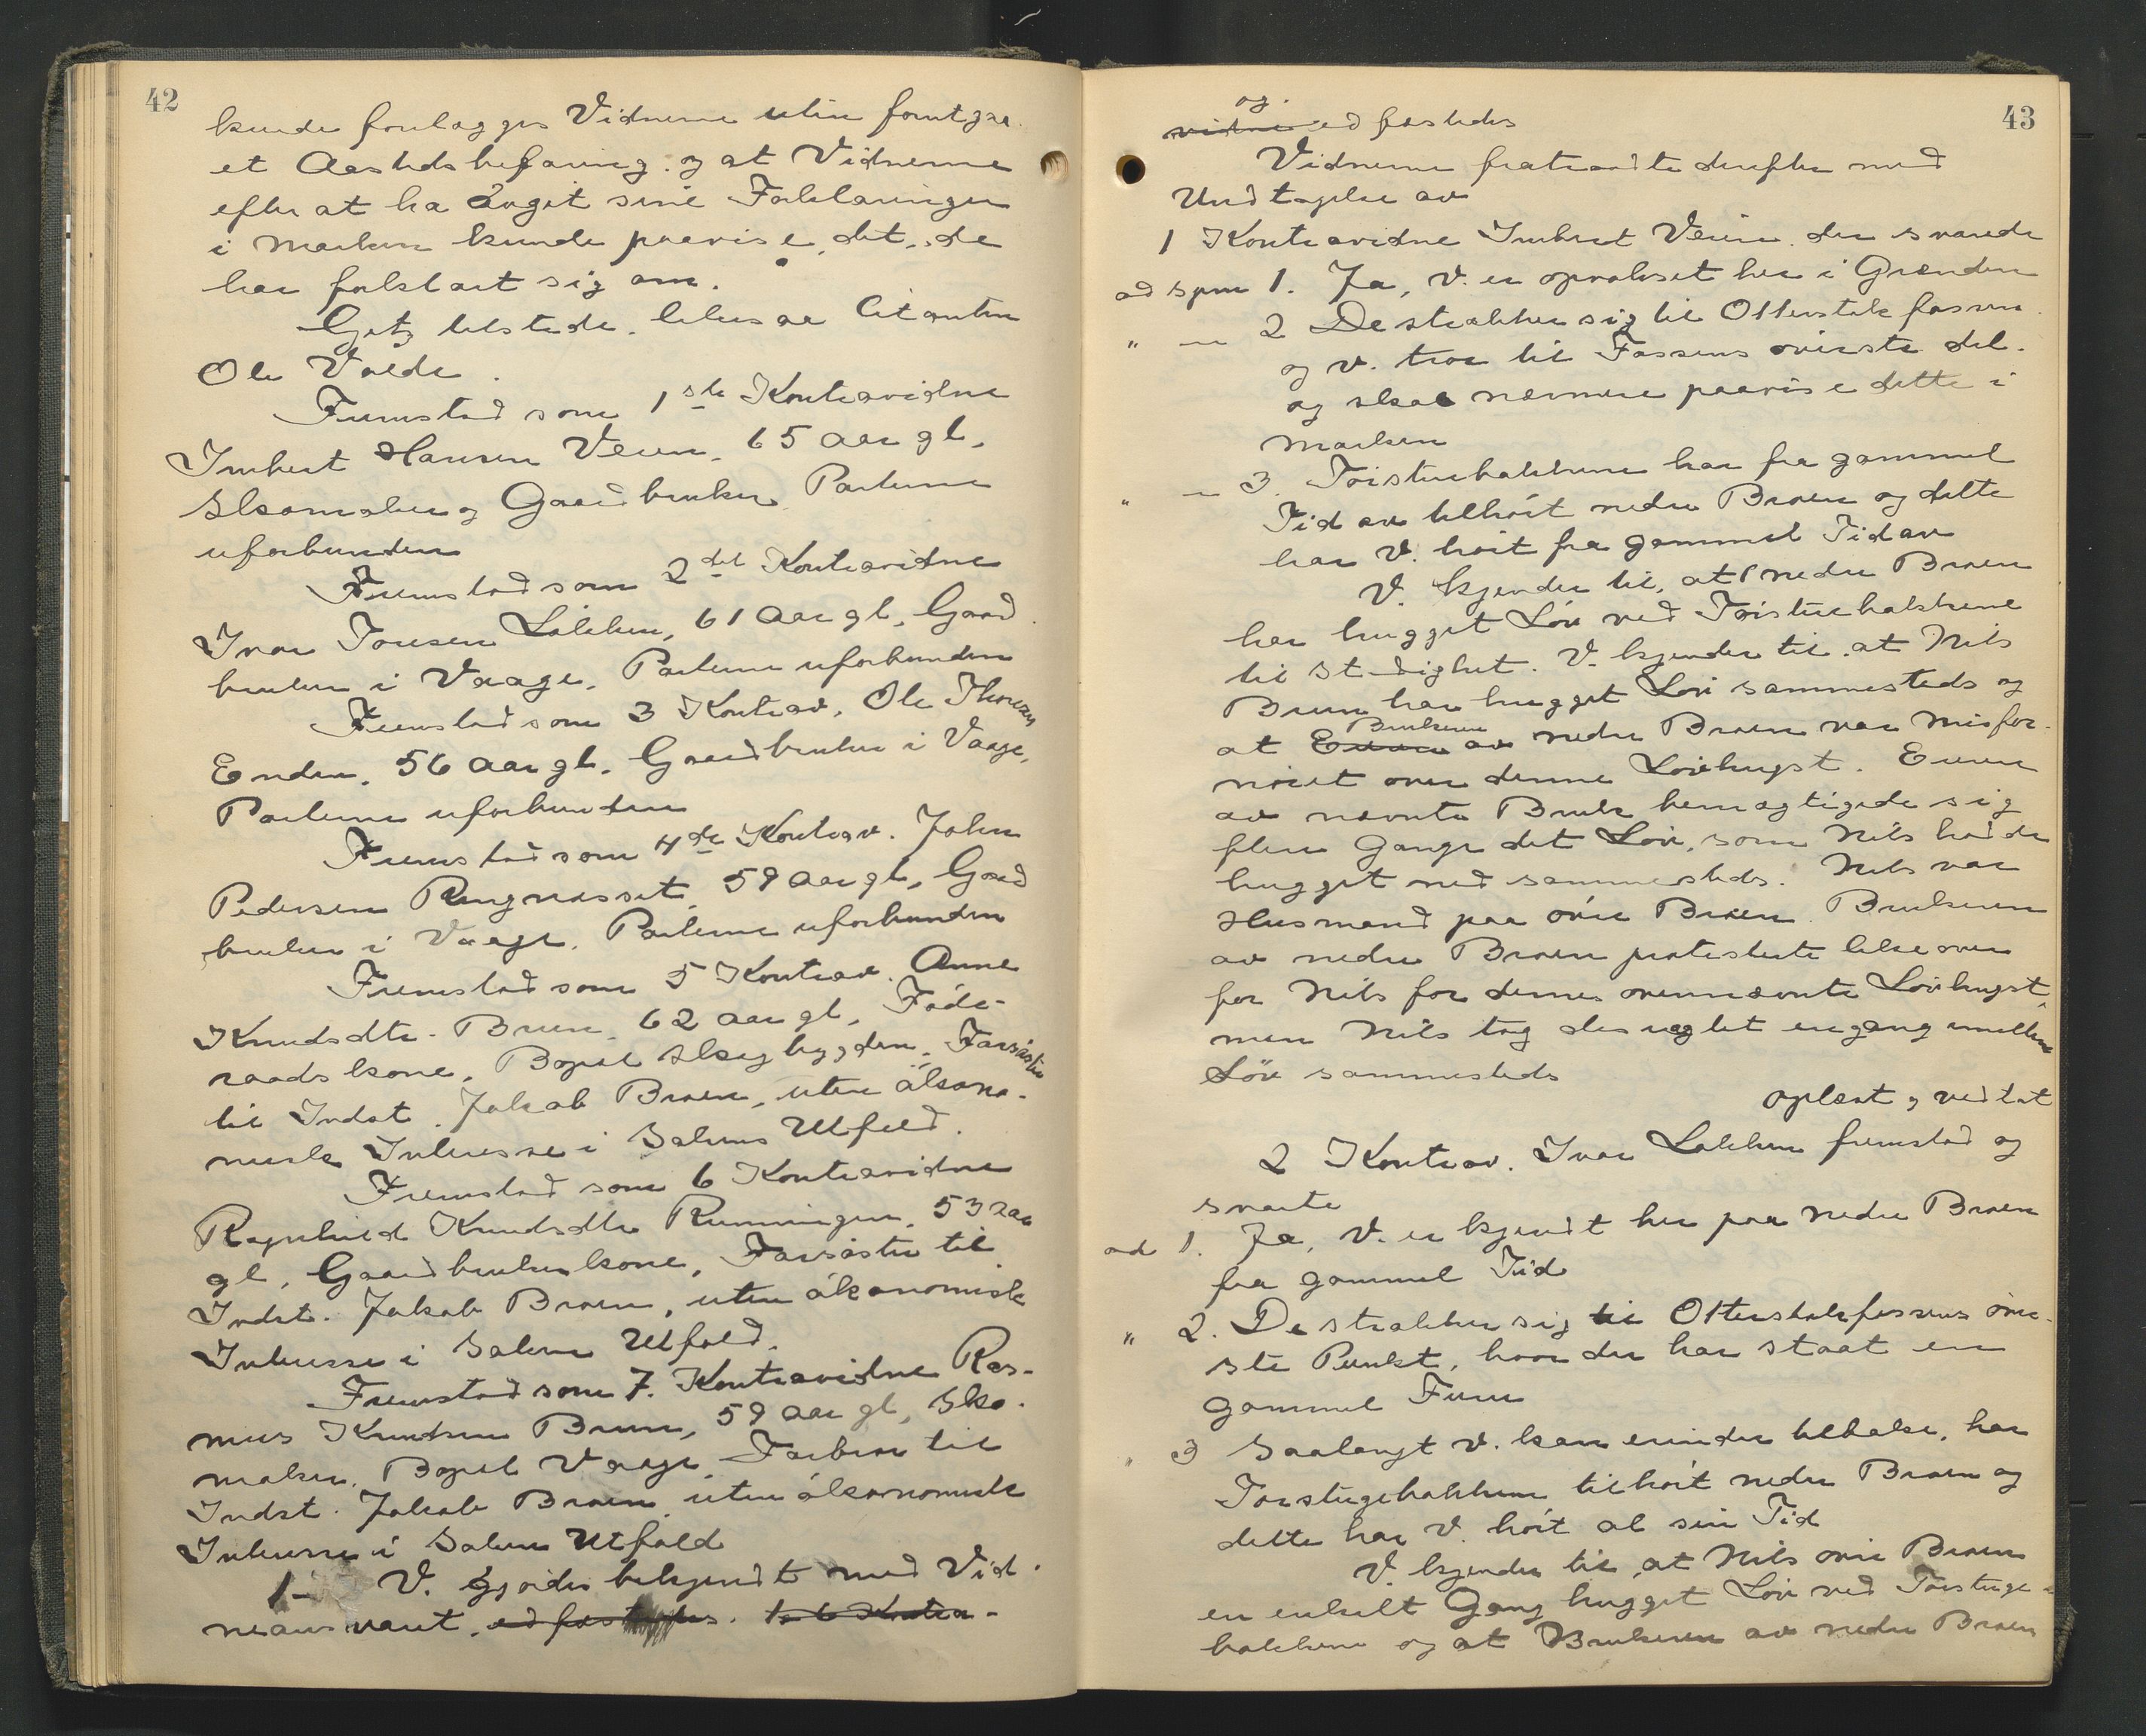 42
kunde forelægges Vidnerne uten forutgaa-
et Aastedsbefaring og at Vidnerne
efter at ha avgit sine Forklaringer
i Marken kunde paavise det, de
har forklart sig om.
Gotz tilstede. Likesaa Citanten
Ole Valde.
Fremstod som 1ste Kontravidne
Imbert Hansen Veien, 65 Aar gl.
Skomaker og Gaardbruker. Parterne
uforbunden
Fremstod som 2det Kontravidne
Ivar Lökken, 61 Aar gl, Gaard
bruker i Vaage. Parterne uforbunden
Fremstod som 3 Kontrav. Ole
Enden, 56 Aar gl. Gaardbruker i Vaage,
Parterne uforbunden
Fremstod som 4de Kontrav. John
Pedersen Rangnesset, 59 Aar gl, Gaard
bruker i Vaage. Parterne uforbunden
Fremstod som 5 Kontrav. Anne
Knudsdtr. Brun, 62 Aar gl, Föde-
raadskone, Bopæl Skogbygden, Farsöster
til Indst. Jakob Braen, uten ökono-
misk Interesse i Sakens Utfald.
Fremstod som 6 Kontravidne
Ragnhild Knudsdtr Rumningen, 53 aar
gl, Gaardbrukerkone, Farsöster til
Indst. Jakob Braen, uten ökonomisk
Interesse i Sakens Utfald.
Fremstod som 7. Kontravidne Ras-
mus Knudsen Brun, 59 Aar gl, Sko-
maker, Bopæl Vaage, Farbror til
Indst. Jakob Braen uten ökonomisk
Interesse i Sakens Utfald
V. gjordes bekjendt med Vid-
neansvaret, edfæstedes. 1-6 Kontra-
43
og
vidne edfæstedes
Vidnerne fratraadte derefter med
Undtagelse av
1 Kontravidne Imbert Veien der svarede
ad spm 1. Ja, V. er opvokset her i Grænden
" – 2 De strækker sig til Otterstøkfossen
og V. tror til Fossens överste del.
og skal nærmere paavise dette i
Marken
" – 3. Toistuebakkene har fra gammel
Tid av tilhört nedre Braen og dette
har V. hört fra gammel Tid av
V. kjender til, at nedre Braen
har hugget Löv ved Toistuebakkene
til Stadighet. V. kjender til at Nils
Brun har hugget Löv sammesteds og
Brukeren
at Eieren av nedre Braen var misfor-
nöiet over denne Lövhugst. Eieren
av nævnte Bruk bemægtigede sig
flere Gange det Löv, som Nils hadde
hugget ned sammesteds. Nils var
Husmand paa övre Braen. Brukeren
av nedre Braen protesterte likeover
for Nils for dennes ovennævnte Lövhugst,
men Nils tog desuagtet engang imellem
Löv sammesteds
oplæst og vedtat
2 Kontrav. Ivar Lökken fremstod og
svarte
ad 1. Ja, V. er kjendt her paa nedre Braen
fra gammel Tid
" 2. De strækker sig til Otterstøkfossens över-
ste Punkt, hvor der har staat en
gammel Furu
" 3 Saalangt V. kan erindre tilbake, har
Torstugebakkene tilhört nedre Braen og
dette har V. hört al sin Tid
V. kjender til, at Nils övre Braen
en enkelt Gang hugget Löv ved Torstuge-
bakkene og at Brukeren av nedre Braen